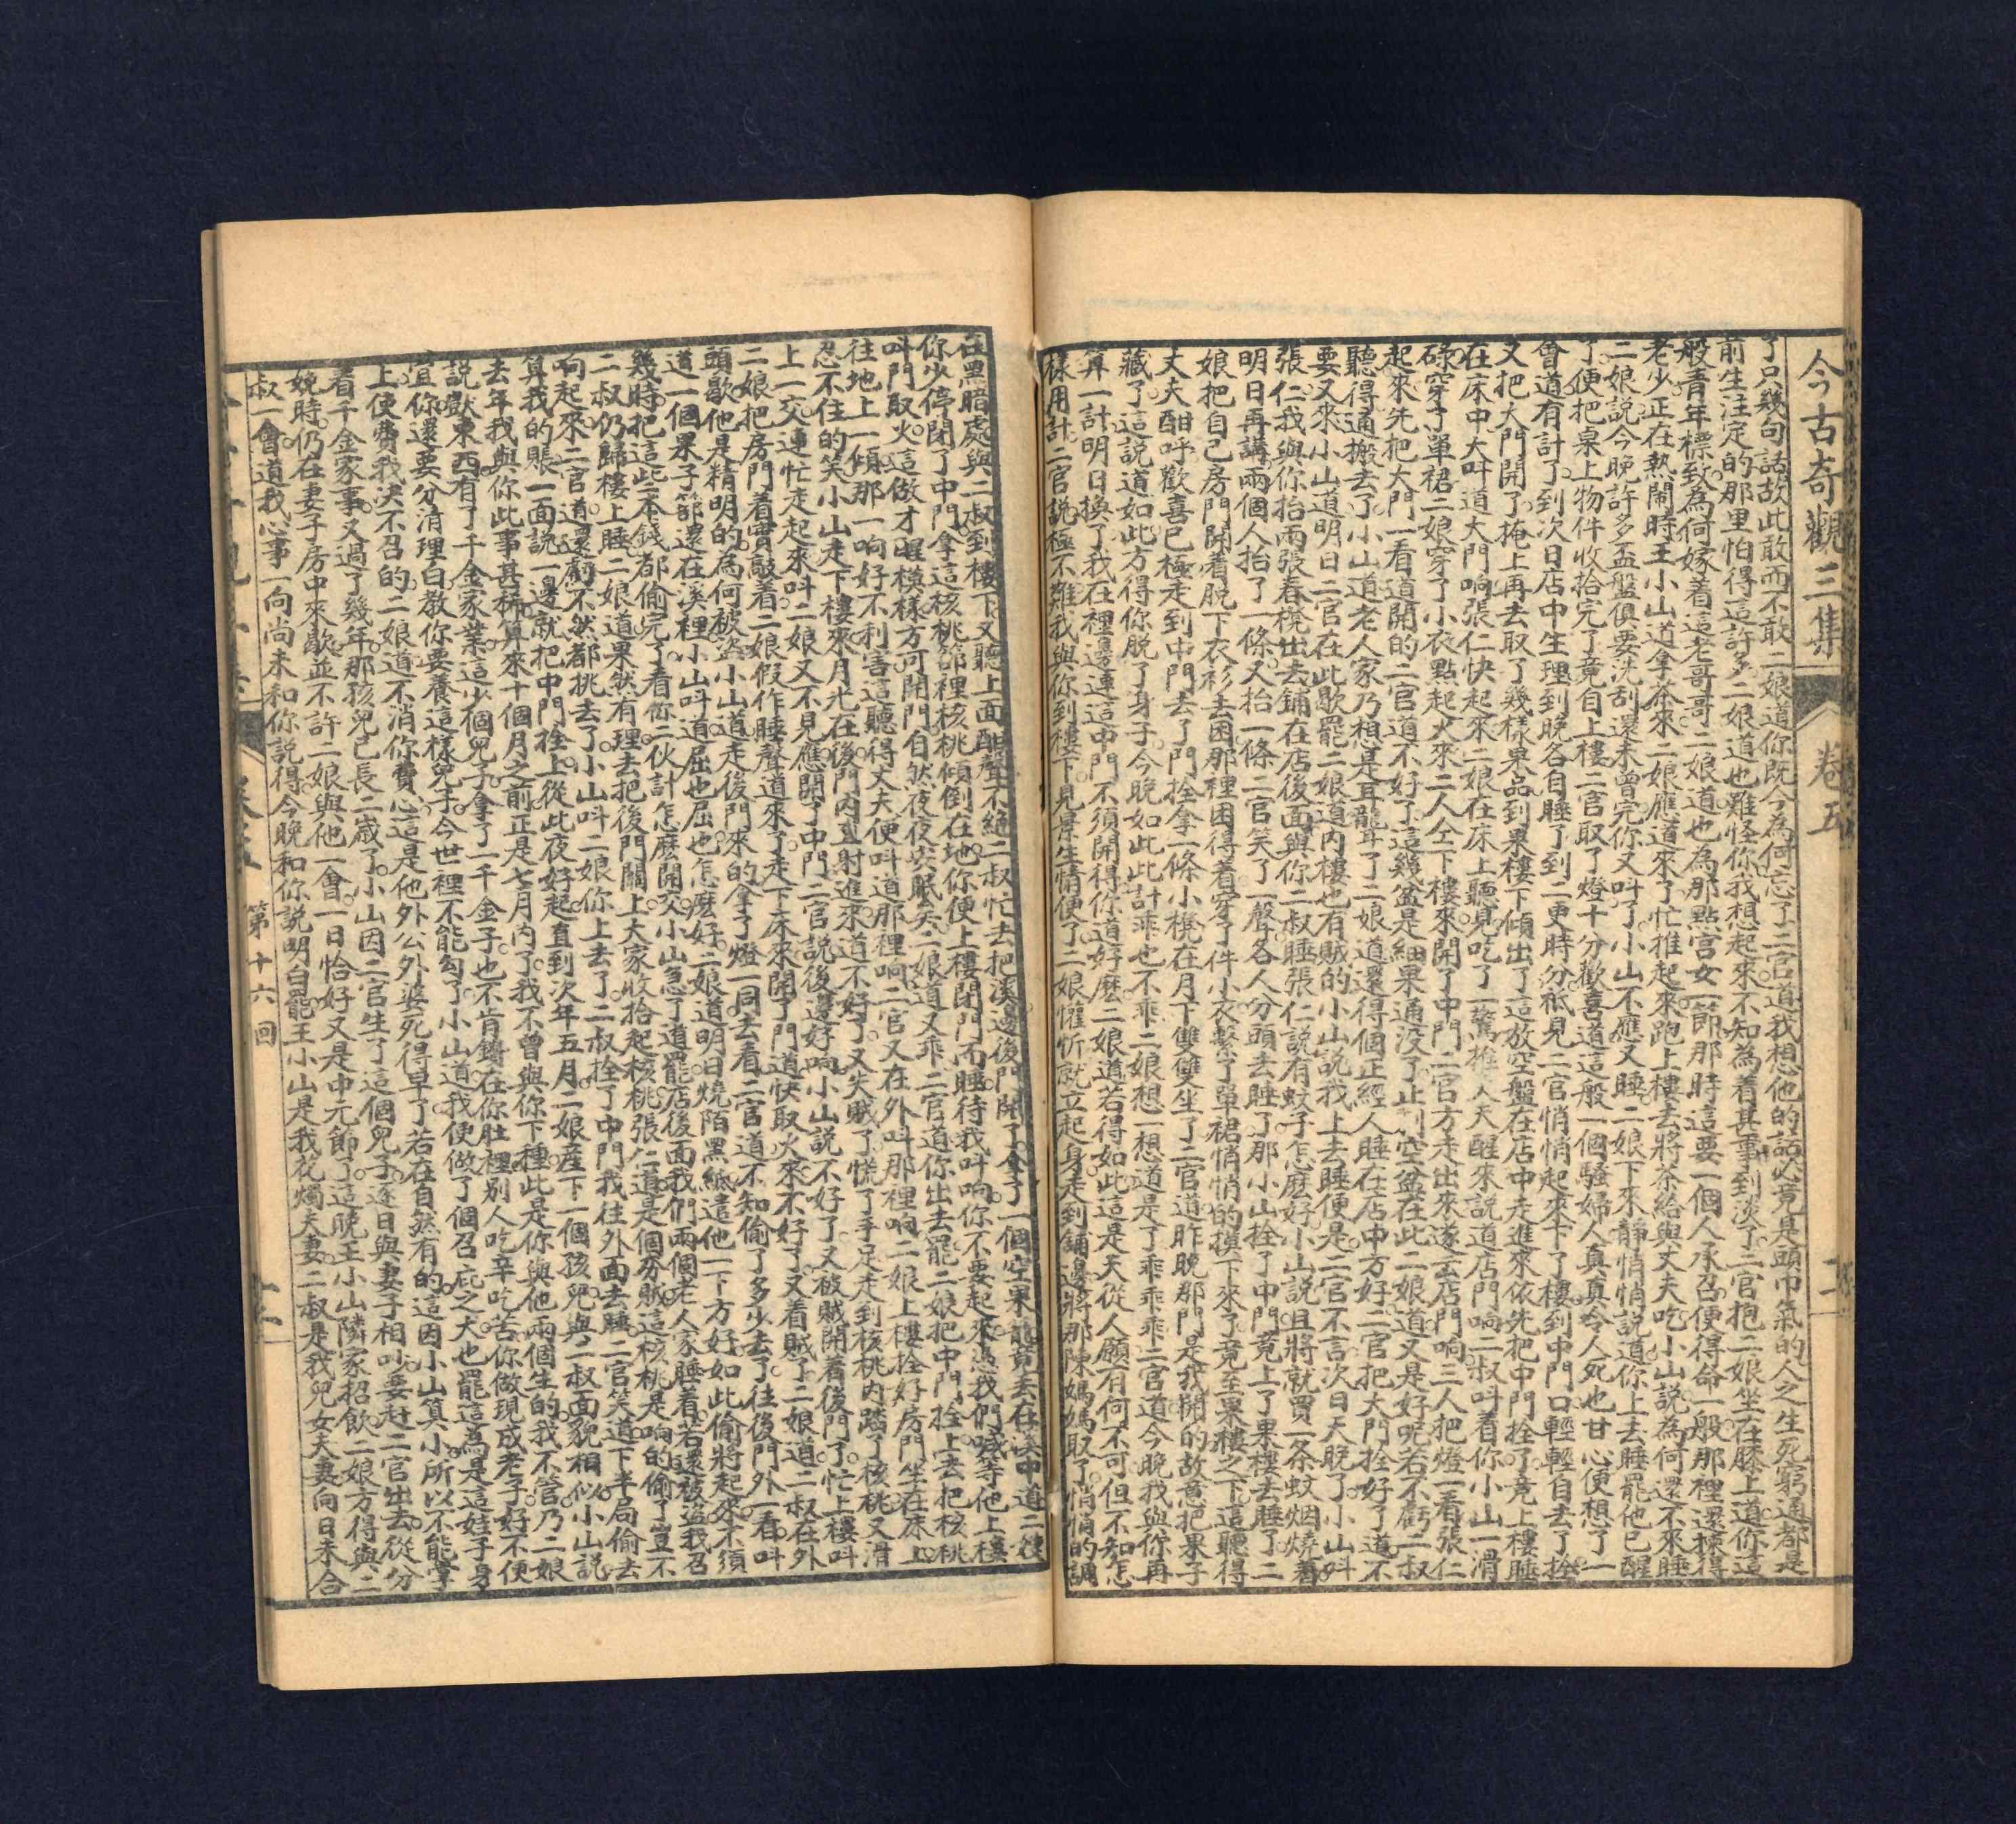 今古奇觀三集 卷五
了只幾句話故此敢而不敢二娘道你既今為何忘了二官道我想他的話必竟是頭巾氣的人之生死窮通都是
前生注定的那里怕得這許多二娘道也難怪你我想起來不知為着甚事到淡了二官抱二娘坐在膝上道你這
般青年標致為何嫁着這老哥哥二娘道也為那點宮女一節那時這要一個人承召便得命一般那裡還揀得
老少正在熱鬧時王小山道拿茶來二娘應道來了忙推起來跑上樓去將茶給與丈夫吃小山說為何還不來睡
二娘說今晚許多盃盤俱要洗刮還未曾完你又呌了小山不應又睡二娘下來靜悄悄說道你上去睡罷他已醒
了便把桌上物件收拾完了竟自上樓二官取了燈十分歡喜道這般一個騷婦人真真令人死也甘心便想了一
會道有計了到次日店中生理到晚各自睡了到二更時分祗見二官悄悄起來下了樓到中門口輕輕自去了拴
又把大門開了掩上再去取了幾樣果品到果樓下傾出了這放空盤在店中走進來依先把中門拴了竟上樓睡
在床中大呌道大門响張仁快起來二娘在床上聽見吃了一驚推 人天醒來說道店門响二叔呌着你小山一滑
碌穿了單裙二娘穿了小衣點起火來二人仝下樓來開了中門二官方走出來遂去店門响三人把燈一看張仁
起來先把大門一看道開的二官道不好了這幾盆是細果通没了止剩空盆在此二娘道又是好呢若不虧二叔
聽得通搬去了小山道老人家乃想是耳聾了二娘道還得個正經人睡在店中方好二官把大門拴好了道不
要又來小山道明日二官在此歇罷二娘道内樓也有賊的小山說我上去睡便是二官不言次日天晚了小山呌
張仁我與你抬兩張春櫈出去鋪在店後面與你二叔睡張仁說有蚊子怎麽好小山說且將就買一条蚊烟燒着
明日再講兩個人抬了一條又抬一條二官笑了一聲各人分頭去睡了那小山拴了中門竟上了果樓去睡了二
娘把自己房門開着脱下衣衫去困那裡困得着穿了件小衣繫了單裙悄悄的摸下來了竟至果樓之下這聽得
丈夫酣呼歡喜已極走到中門去了門拴拿一條小櫈在月下雙雙坐了二官道昨晚那門是我開的故意把果子
藏了這說道如此方得你脱了身子今晚如此此計乖也不乖二娘想一想道是了乖乖乖二官道今晚我與你再
算一計明日換了我在裡邊連這中門不須開得你道好麽二娘道若得如此這是天從人願有何不可但不知怎
樣用計二官說極不難我與你到樓下見景生情便了二娘懽忻就立起身走到鋪邊將那陳媽媽取了悄悄的調
在黑暗處與二叔到樓下又聽上面酣聲不絶二叔忙去把溪邊後門開了拿了一個空果 竟丢在溪中道二嫂
你少停閉了中門拿這核桃箁裡核桃傾倒在地你便上樓閉門而睡待我呌响你不要起來憑我們喊等他上樓
呌門取火這做才呢橫樣方可開門自然夜夜安眠矣二娘道又乖二官道你出去罷二娘把中門拴上去把核桃
往地上一傾那一响好不利害這聽得丈夫便呌道那裡响二官又在外呌那裡响二娘上樓拴好房門坐在床上
忍不住的笑小山走下樓來月光在後門内直射進來道不好了又失賊了慌了手足走到核桃内踏了核桃又滑
上一交連忙走起來呌二娘又不見應開了中門二官說後邊好响小山說不好了又被賊開着後門了忙上樓呌
二娘把房門着實敲着二娘假作睡聲道來了走下床來開了門道快取火來不好了又着賊了二娘道二叔在外
頭歇他是精明的為何被盜小山道走後門來的拿了燈一同去看二官道不知偷了多少去了往後門外一看呌
道一個果子箁還在溪裡小山呌道屈也屈也怎麽好二娘道明日燒陌黑紙遣他一下方好如此偷將起來不須
幾時把這些本錢都偷完了看你二伙計怎麽開交小山急了道罷店後面我們兩個老人家睡着若還被盜我召
二叔仍歸樓上睡二娘道果然有理去把後門關上大家收拾起核桃張仁道是個夯賊這核桃是响的偷了豈不
响起來二官道還虧不然都挑去了小山呌二娘你上去了二叔拴了中門我往外面去睡二官笑道下半局偷去
算我的賬一面說一邊就把中門拴上從此夜好起直到次年五月二娘産下一個孩兒與二叔面貌相似小山說
去年我與你此事甚稀算來十個月之前正是七月内了我不曾與你下種此是你與他兩個生的我不管乃二娘
說獃東西有了千金家業這少個兒子拿了一千金子也不肯鑽在你肚裡別人吃辛吃苦你做現成老子好不便
宜你還要分清理白教你要養這樣兒子今世裡不能勾了小山道我便做了個召庇之大也罷這為是這娃子身
上使費我决不召的二娘道不消你費心這是他外公外婆死得早了若在自然有的這因小山算小所以不能掌
看千金家事又過了幾年那孩兒已長二歲了小山因二官生了這個兒子逐日與妻子相吵要赶二官出去從分
娩時仍在妻子房中來歇並不許二娘與他一會一日恰好又是中元節了這晚王小山隣家招飲二娘方得與二
叔一會道我心事一向尚未和你說得今晚和你說明白罷王小山是我花燭夫妻二叔是我兒女夫妻向日未合
第十六回